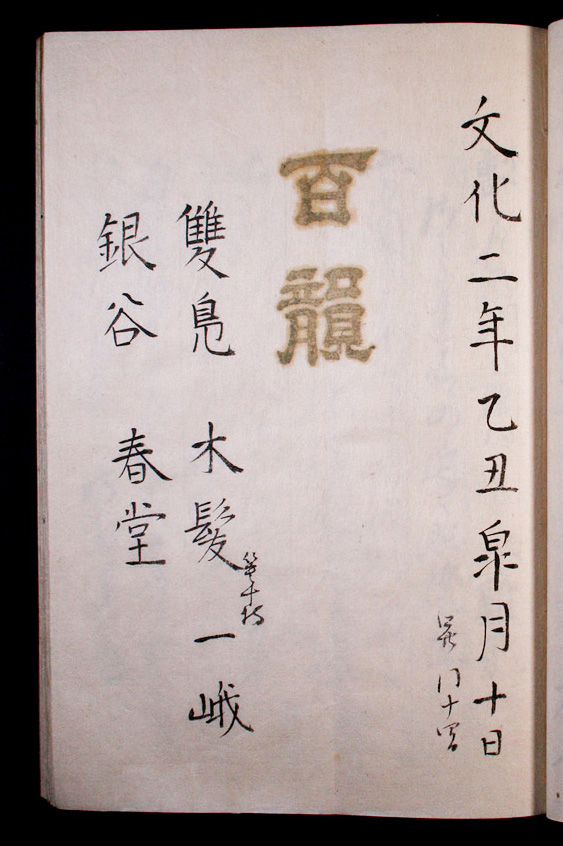 文化二年乙丑皐月十日
百韻
雙鳧 木髪 一峨
銀谷 春堂